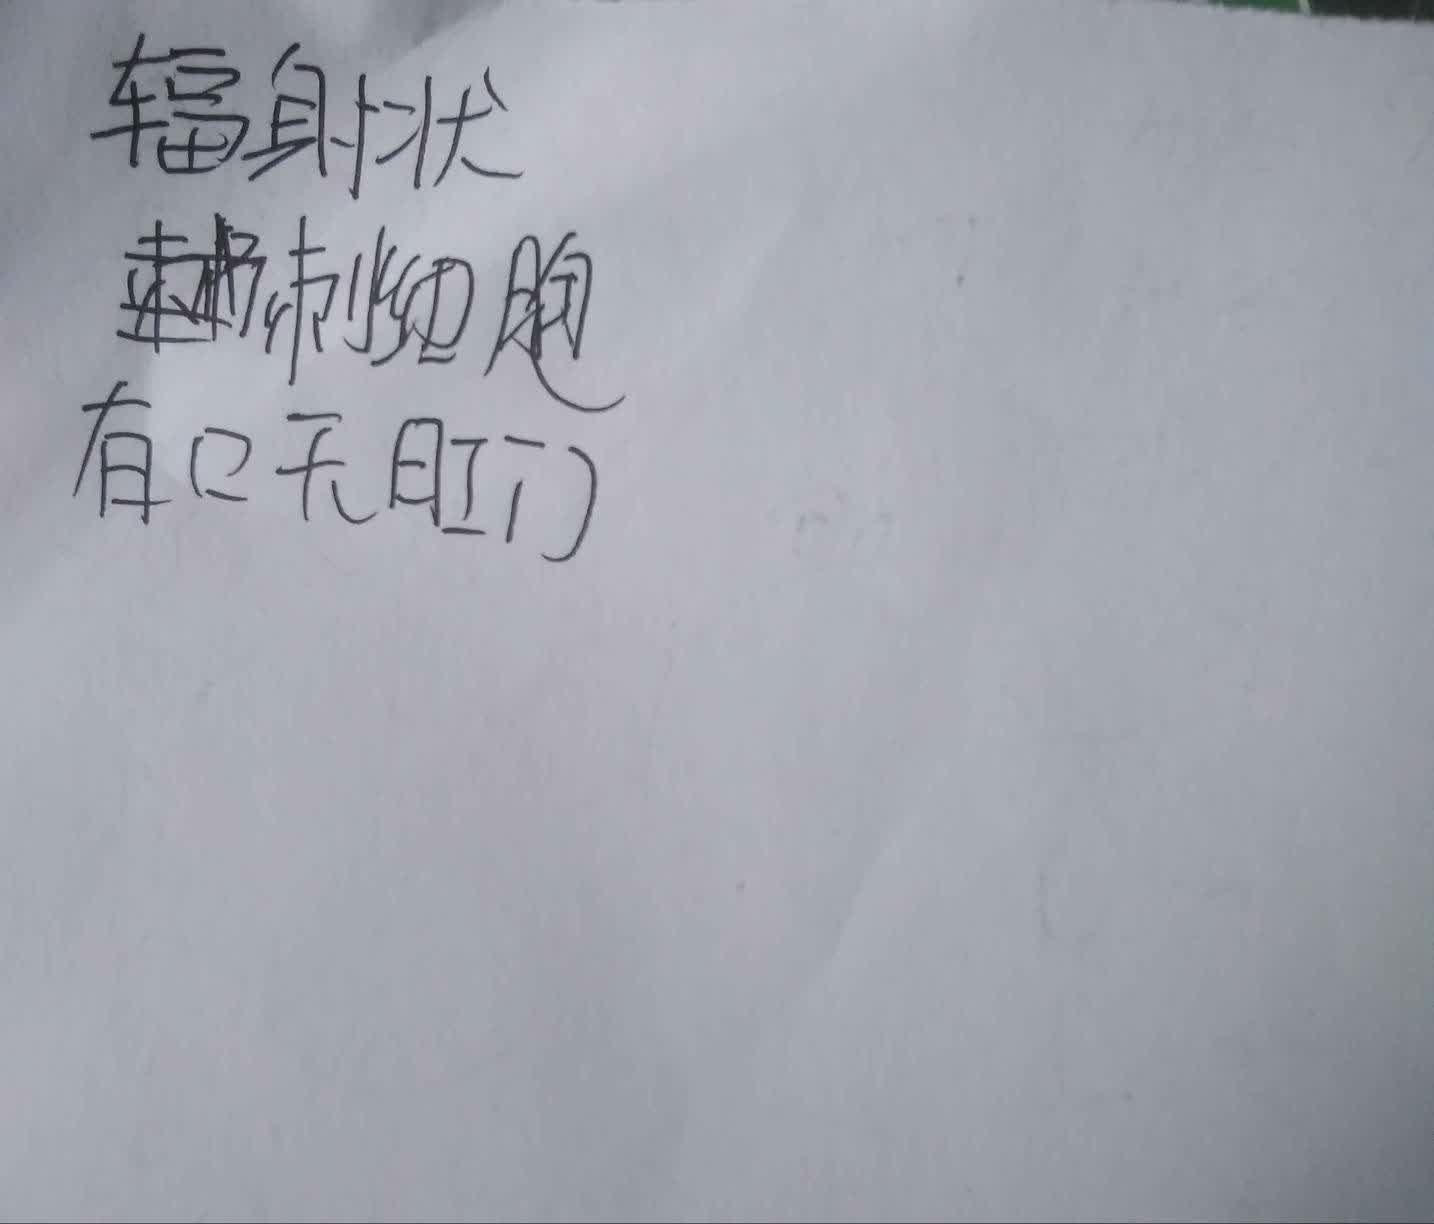 辐射状
刺细胞
有口无肛门